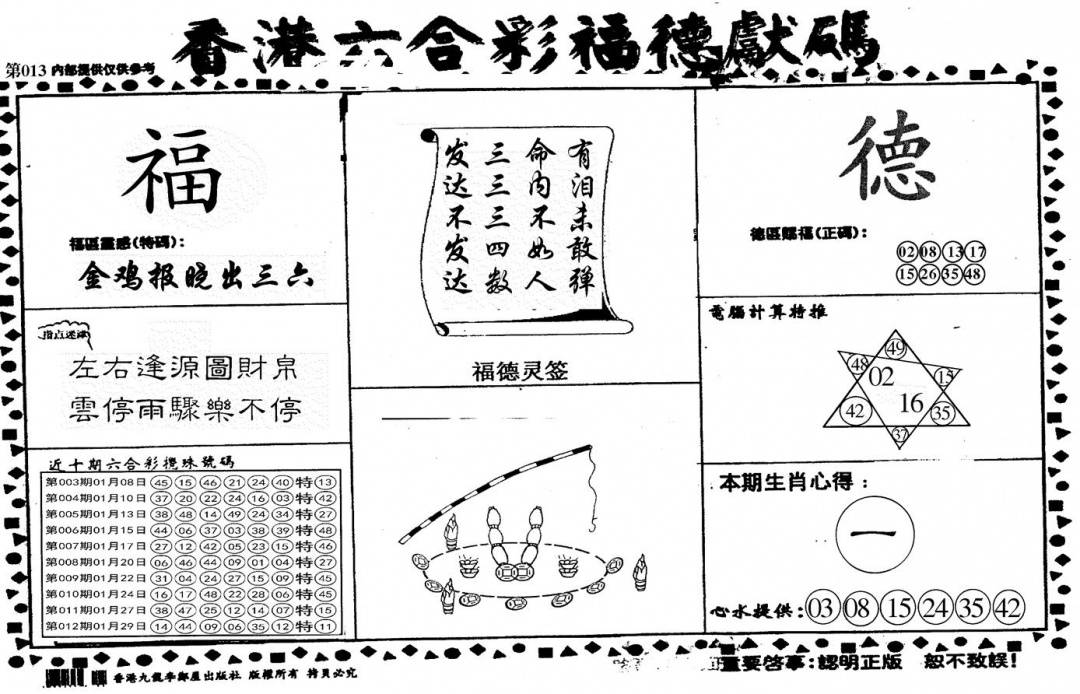 香港六合彩福德獻碼
第013 内部提供仅供参考
福
福區靈感(特碼):
金鸡报晓出三六
指点迷津
左右逢源圖財帛
雲停雨驟樂不停
近十期六合彩攪珠號碼
第003期01月08日 45 15 46 21 24 40 特 13
第004期01月10日 37 20 22 24 16 03 特 42
第005期01月13日 38 48 14 49 24 34 特 27
第006期01月15日 44 06 37 03 38 39 特 48
第007期01月17日 27 12 42 05 23 15 特 46
第008期01月20日 06 46 44 09 01 04 特 27
第009期01月22日 31 04 24 27 15 09 特 45
第010期01月24日 16 17 48 22 28 06 特 45
第011期01月27日 38 47 25 12 14 07 特 15
第012期01月29日 14 44 09 06 35 12 特 11
有泪未敢弹
命内不如人
三三三四数
发达不发达
福德灵签
德
德區賜福(正碼):
02 08 13 17
15 26 35 48
電腦計算特推
49
48 02 15
42 16 35
37
本期生肖心得:
一
心水提供:03 08 15 24 35 42
重要啓事:認明正版 恕不致誤!
香港九龍李鄭屋出版社 版權所有 拷貝必究